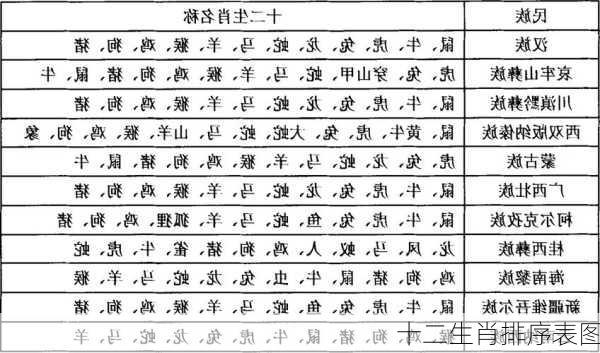 民族 十二生肖名称
汉族 鼠、牛、虎、兔、龙、蛇、马、羊、猴、鸡、狗、猪
哀牢山彝族 虎、兔、穿山甲、蛇、马、羊、猴、鸡、狗、猪、鼠、牛
川滇黔彝族 鼠、牛、虎、兔、龙、蛇、马、羊、猴、鸡、狗、猪
西双版纳傣族 鼠、黄牛、虎、兔、大蛇、蛇、马、山羊、猴、鸡、狗、象
蒙古族 虎、兔、龙、蛇、马、羊、猴、鸡、狗、猪、鼠、牛
广西壮族 鼠、牛、虎、兔、龙、蛇、马、羊、猴、鸡、狗、猪
柯尔克孜族 鼠、牛、虎、兔、鱼、蛇、马、羊、狐狸、鸡、狗、猪
桂西彝族 龙、凤、马、蚁、人、鸡、狗、猪、雀、牛、虎、蛇
海南黎族 鸡、狗、猪、鼠、牛、虫、兔、龙、蛇、马、羊、猴
新疆维吾尔族 鼠、牛、虎、兔、鱼、蛇、马、羊、猴、鸡、狗、猪
猴、鸡、狗、猪、鼠、牛、虎、兔、龙、蛇、马、羊
十二生肖排序表图